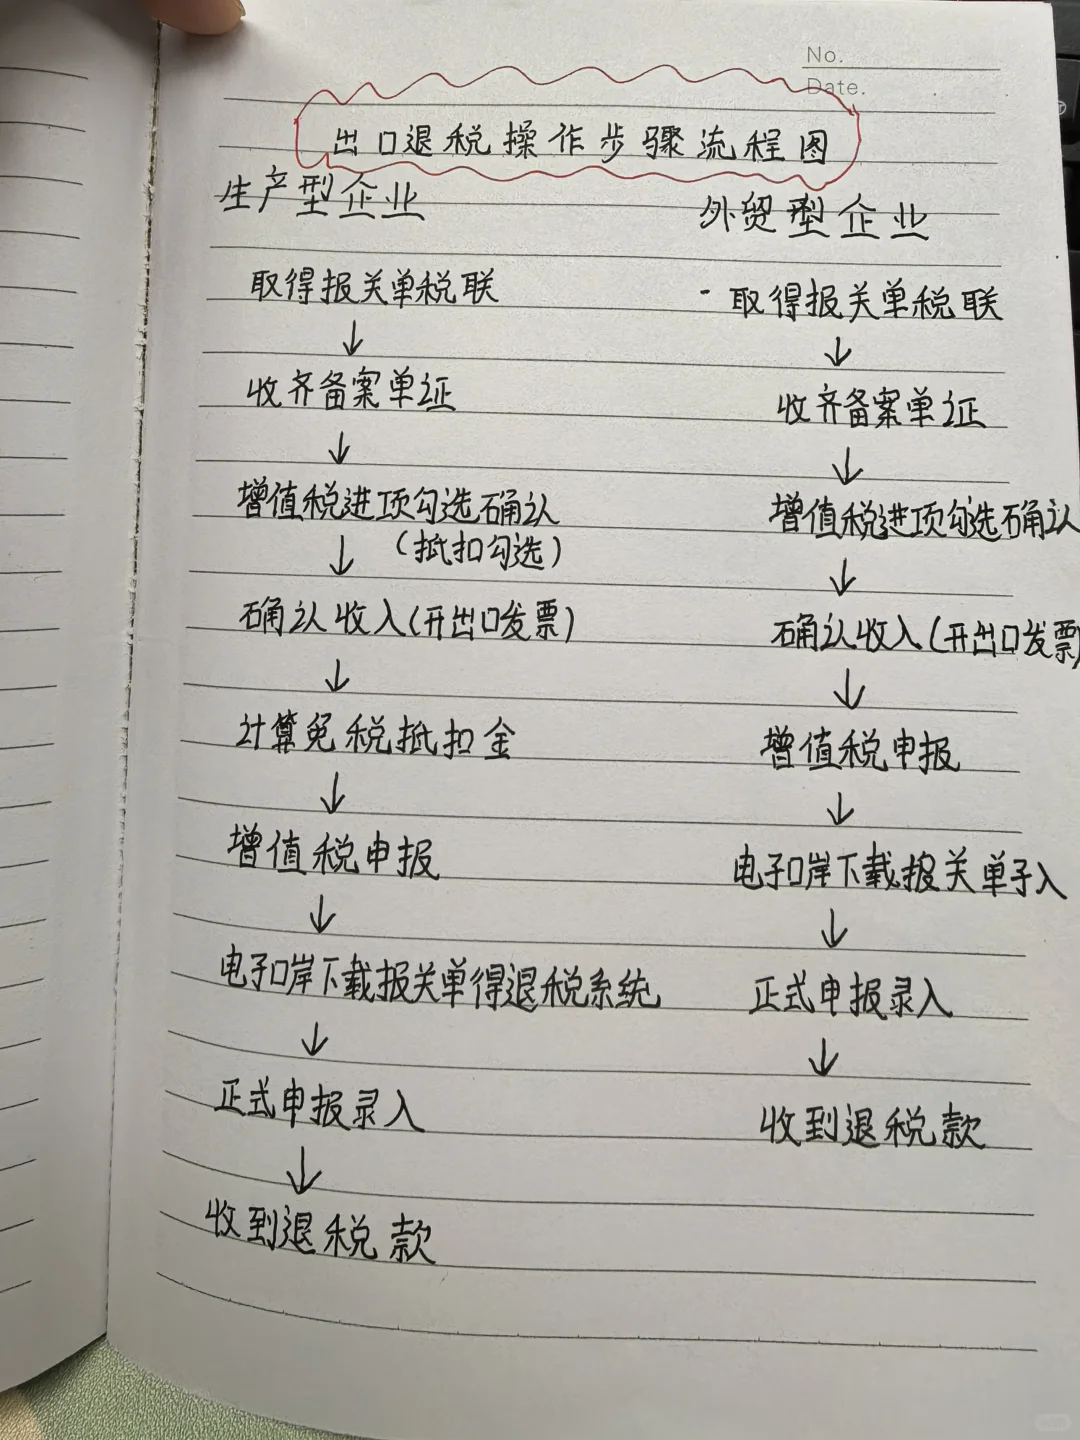 No.
Date.
出口退税操作步骤流程图
生产型企业
取得报关单税联
↓
收齐备案单证
↓
增值税进项勾选确认
(抵扣勾选)
↓
确认收入(开出口发票)
↓
计算免税抵扣金
↓
增值税申报
↓
电子口岸下载报关单得退税系统
↓
正式申报录入
↓
收到退税款
外贸型企业
-取得报关单税联
↓
收齐备案单证
↓
增值税进项勾选确认
↓
确认收入(开出口发票)
↓
增值税申报
↓
电子口岸下载报关单子入
↓
正式申报录入
↓
收到退税款